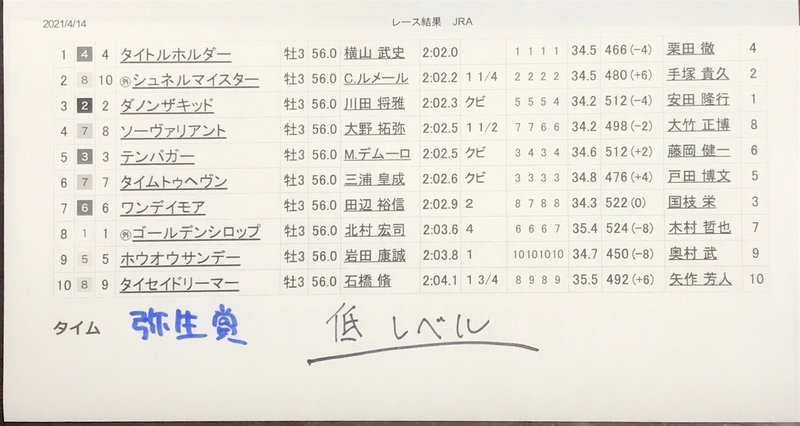 2021/4/14 レース結果 JRA
1 4 4 タイトルホルダー 牡3 56.0 横山 武史 2:02.0 1 1 1 1 34.5 466(−4) 栗田 徹 4
2 8 10 ㊕シュネルマイスター 牡3 56.0 C.ルメール 2:02.2 1 1/4 2 2 2 2 34.5 480(+6) 手塚 貴久 2
3 2 2 ダノンザキッド 牡3 56.0 川田 将雅 2:02.3 クビ 5 5 5 4 34.2 512(−4) 安田 隆行 1
4 7 8 ソーヴァリアント 牡3 56.0 大野 拓弥 2:02.5 1 1/2 7 7 6 6 34.2 498(−2) 大竹 正博 8
5 3 3 テンバガー 牡3 56.0 M.デムーロ 2:02.5 クビ 3 4 3 4 34.6 512(+2) 藤岡 健一 6
6 7 7 タイムトゥヘヴン 牡3 56.0 三浦 皇成 2:02.6 クビ 3 3 3 3 34.8 476(+4) 戸田 博文 5
7 6 6 ワンデイモア 牡3 56.0 田辺 裕信 2:02.9 2 8 7 8 8 34.3 522(0) 国枝 栄 3
8 1 1 ㊕ゴールデンシロップ 牡3 56.0 北村 宏司 2:03.6 4 6 6 6 7 35.4 524(−8) 木村 哲也 7
9 5 5 ホウオウサンデー 牡3 56.0 岩田 康誠 2:03.8 1 10101010 34.7 450(−8) 奥村 武 9
10 8 9 タイセイドリーマー 牡3 56.0 石橋 脩 2:04.1 1 3/4 8 9 8 9 35.5 492(+6) 矢作 芳人 10
タイム 弥生賞 低レベル